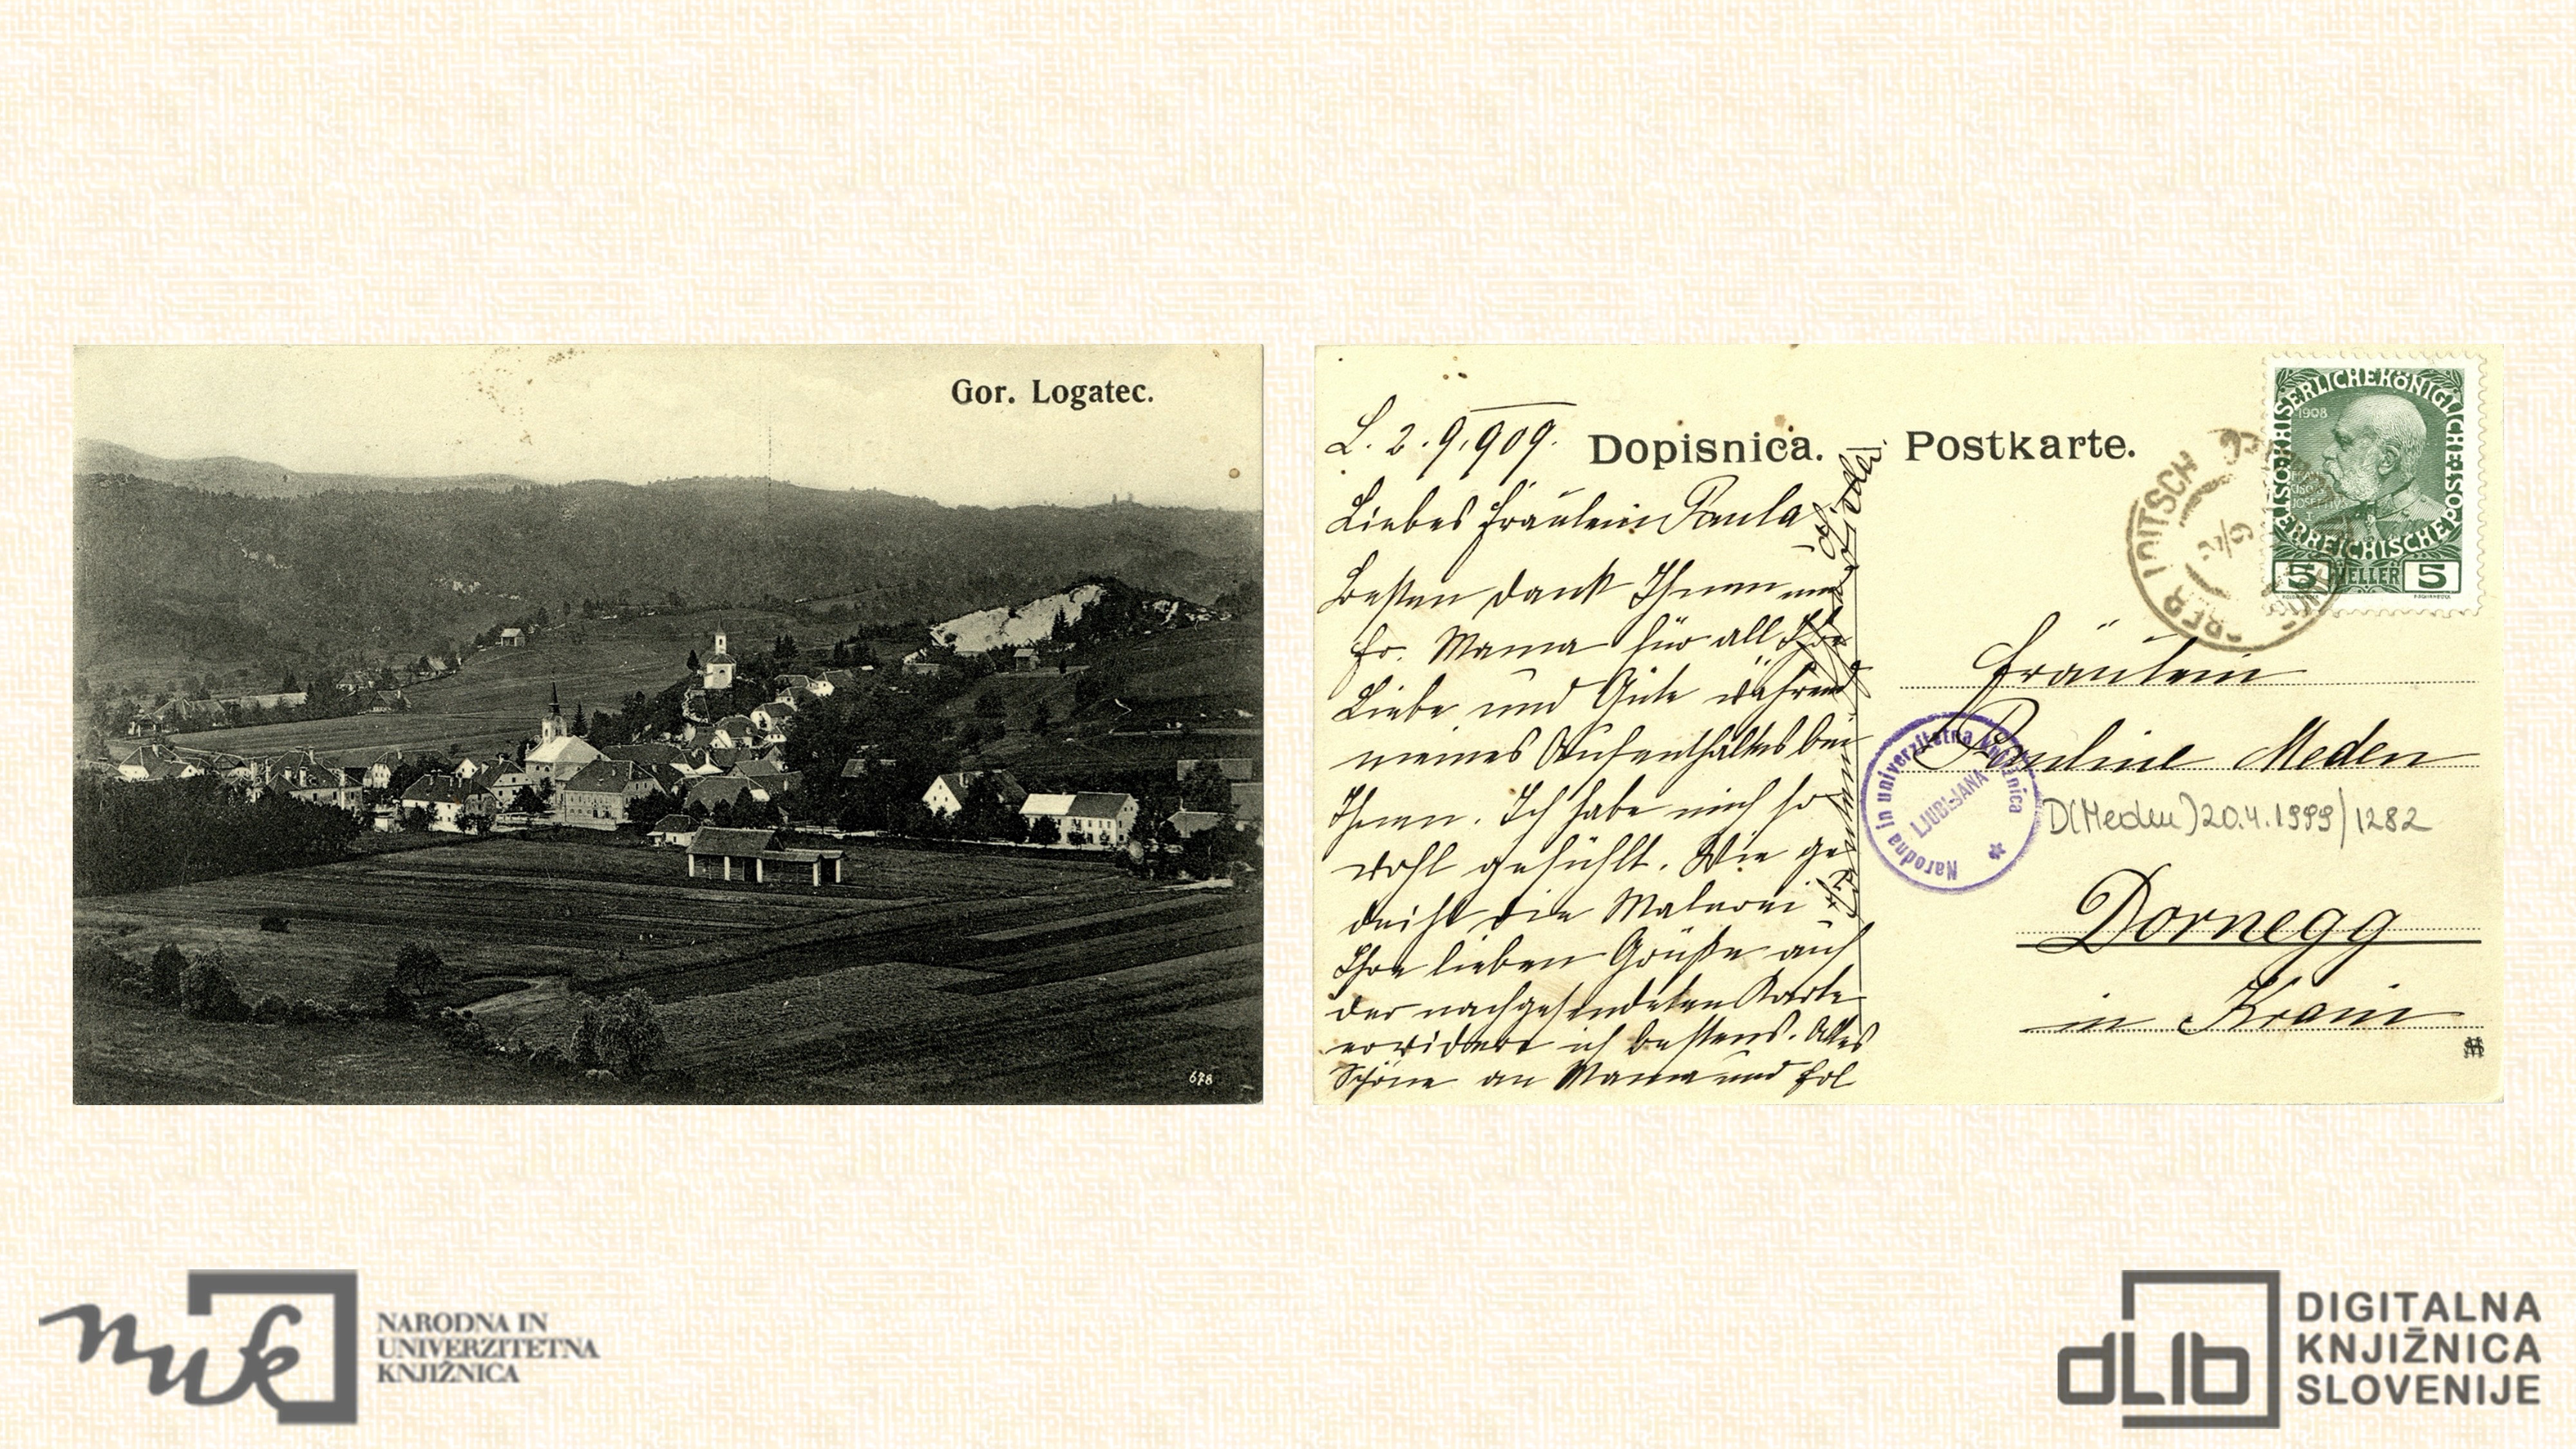 Gor. Logatec.
678
L. 2. 9. 909.
Dopisnica. Postkarte.
Liebes Fräulein Paula
Besten Dank Ihnen und
Fr. Mama für all Ihre
Liebe und Güte während
meines Aufenthaltes bei
Ihnen. Ich habe mich so
wohl gefühlt. Wie ge-
deiht die Malerei
Ihre lieben Grüße auf
der nachgesendeten Karte
erwidere ich bestens. Alles
Schöne an Mama und Frl
KAISERLICHE KÖNIGLICHE
ÖSTERREICHISCHE POST
1908
5 HELLER 5
LOITSCH
Fräulein
Pauline Meden
Narodna in univerzitetna knjižnica
LJUBLJANA
D(Meden)20.4.1999/1282
Dornegg
in Krain
nuk
NARODNA IN
UNIVERZITETNA
KNJIŽNICA
dLib
DIGITALNA
KNJIŽNICA
SLOVENIJE